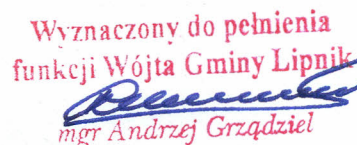 Wyznaczony do pełnienia
funkcji Wójta Gminy Lipnik
mgr Andrzej Grządziel